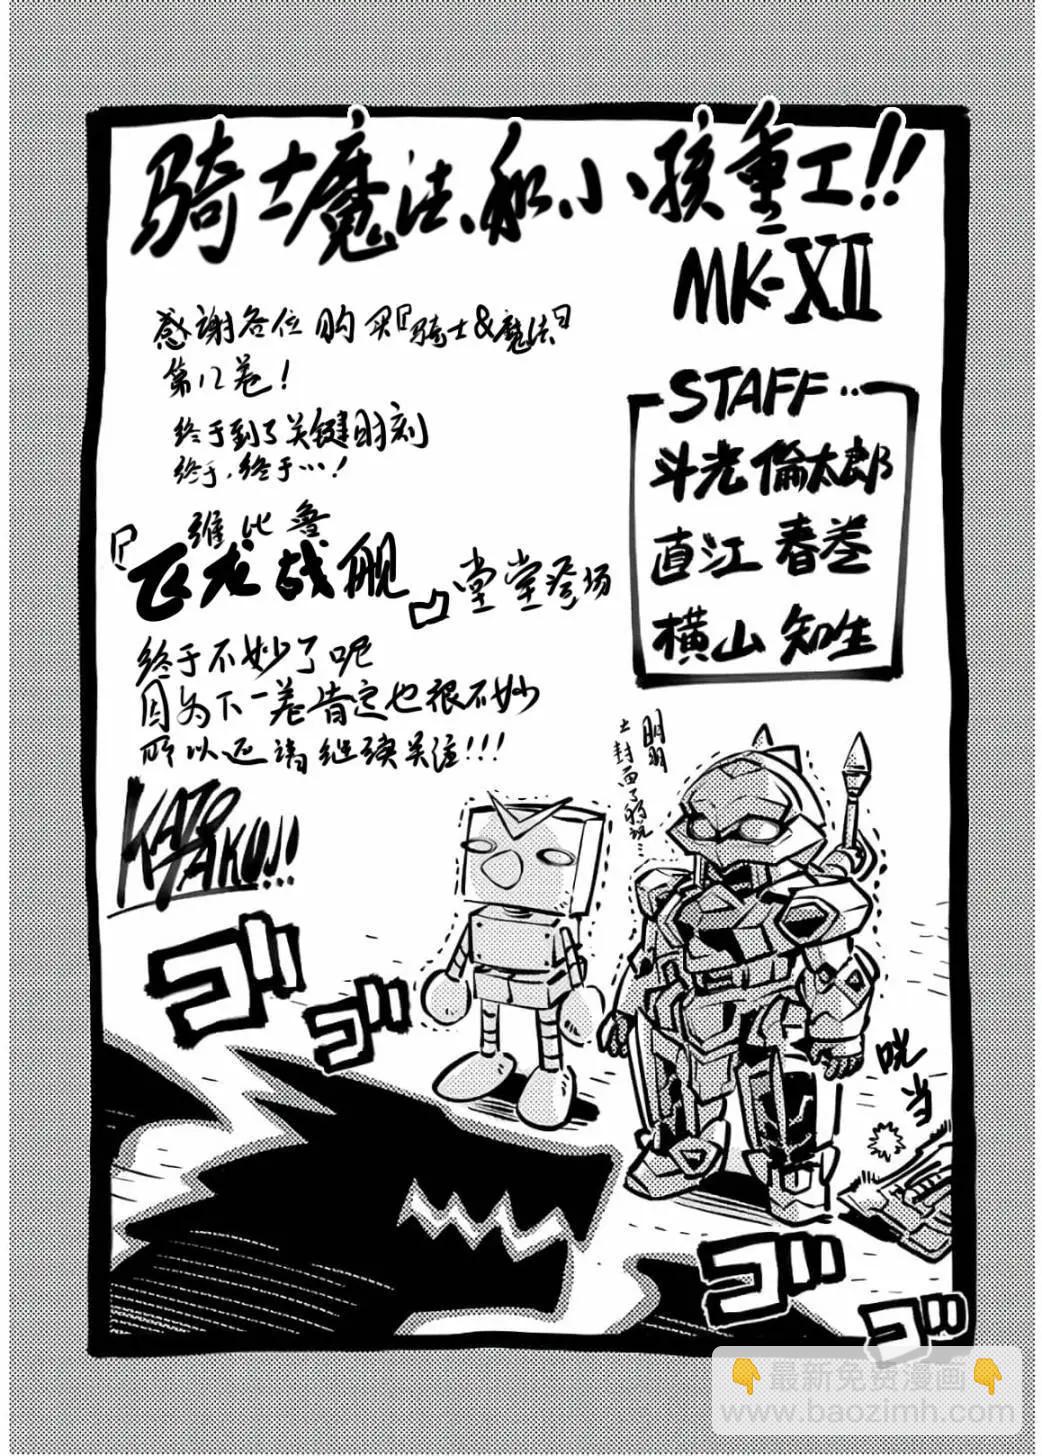 骑士魔法和小孩重工!!
MK-XII
感谢各位购买『骑士&魔法』
第12卷!
终于到了关键时刻
终于,终于…!
维比鲁
『飞龙战舰』堂堂登场
终于不妙了呢
因为下一卷肯定也很不妙
所以还请继续关注!!!
KATO
TAKU!!
STAFF‥
斗光倫太郎
直江 春巻
横山 知生
明明
上封面了
ゴゴ
ゴゴ
咣当
最新免费漫画
www.baozimh.com